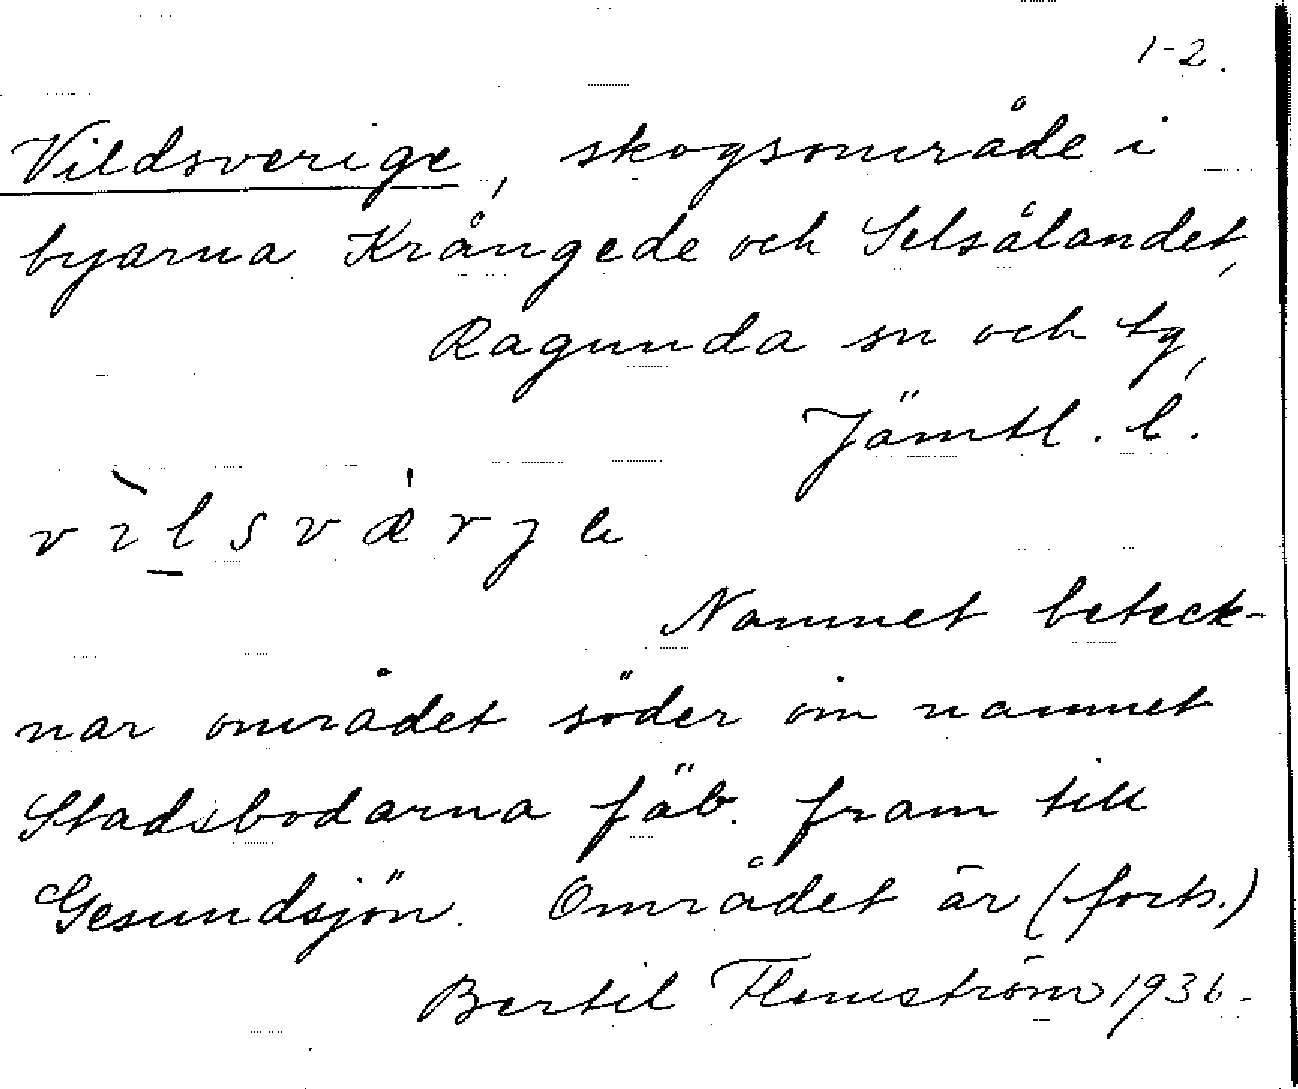 1-2.
Vildsverige, skogsområde i
byarna Krångede och Selsålandet,
Ragunda sn och tg,
Jämtl. l.
vìlsværje
Namnet beteck-
nar området söder om namnet
Stadsbodarna fäb. fram till
Gesundsjön. Området är (forts.)
Bertil Flemström 1936.